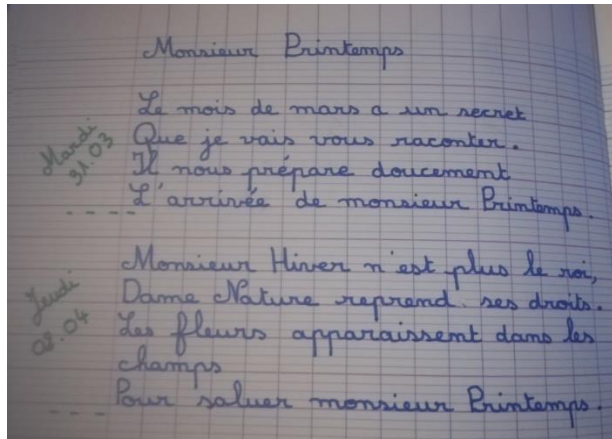 Monsieur Printemps
Le mois de mars a un secret
Mardi
31.03
Que je vais vous raconter.
Il nous prépare doucement
L'arrivée de monsieur Printemps.
Monsieur Hiver n'est plus le roi,
Jeudi
02.04
Dame Nature reprend ses droits.
Les fleurs apparaissent dans les
champs
Pour saluer monsieur Printemps.